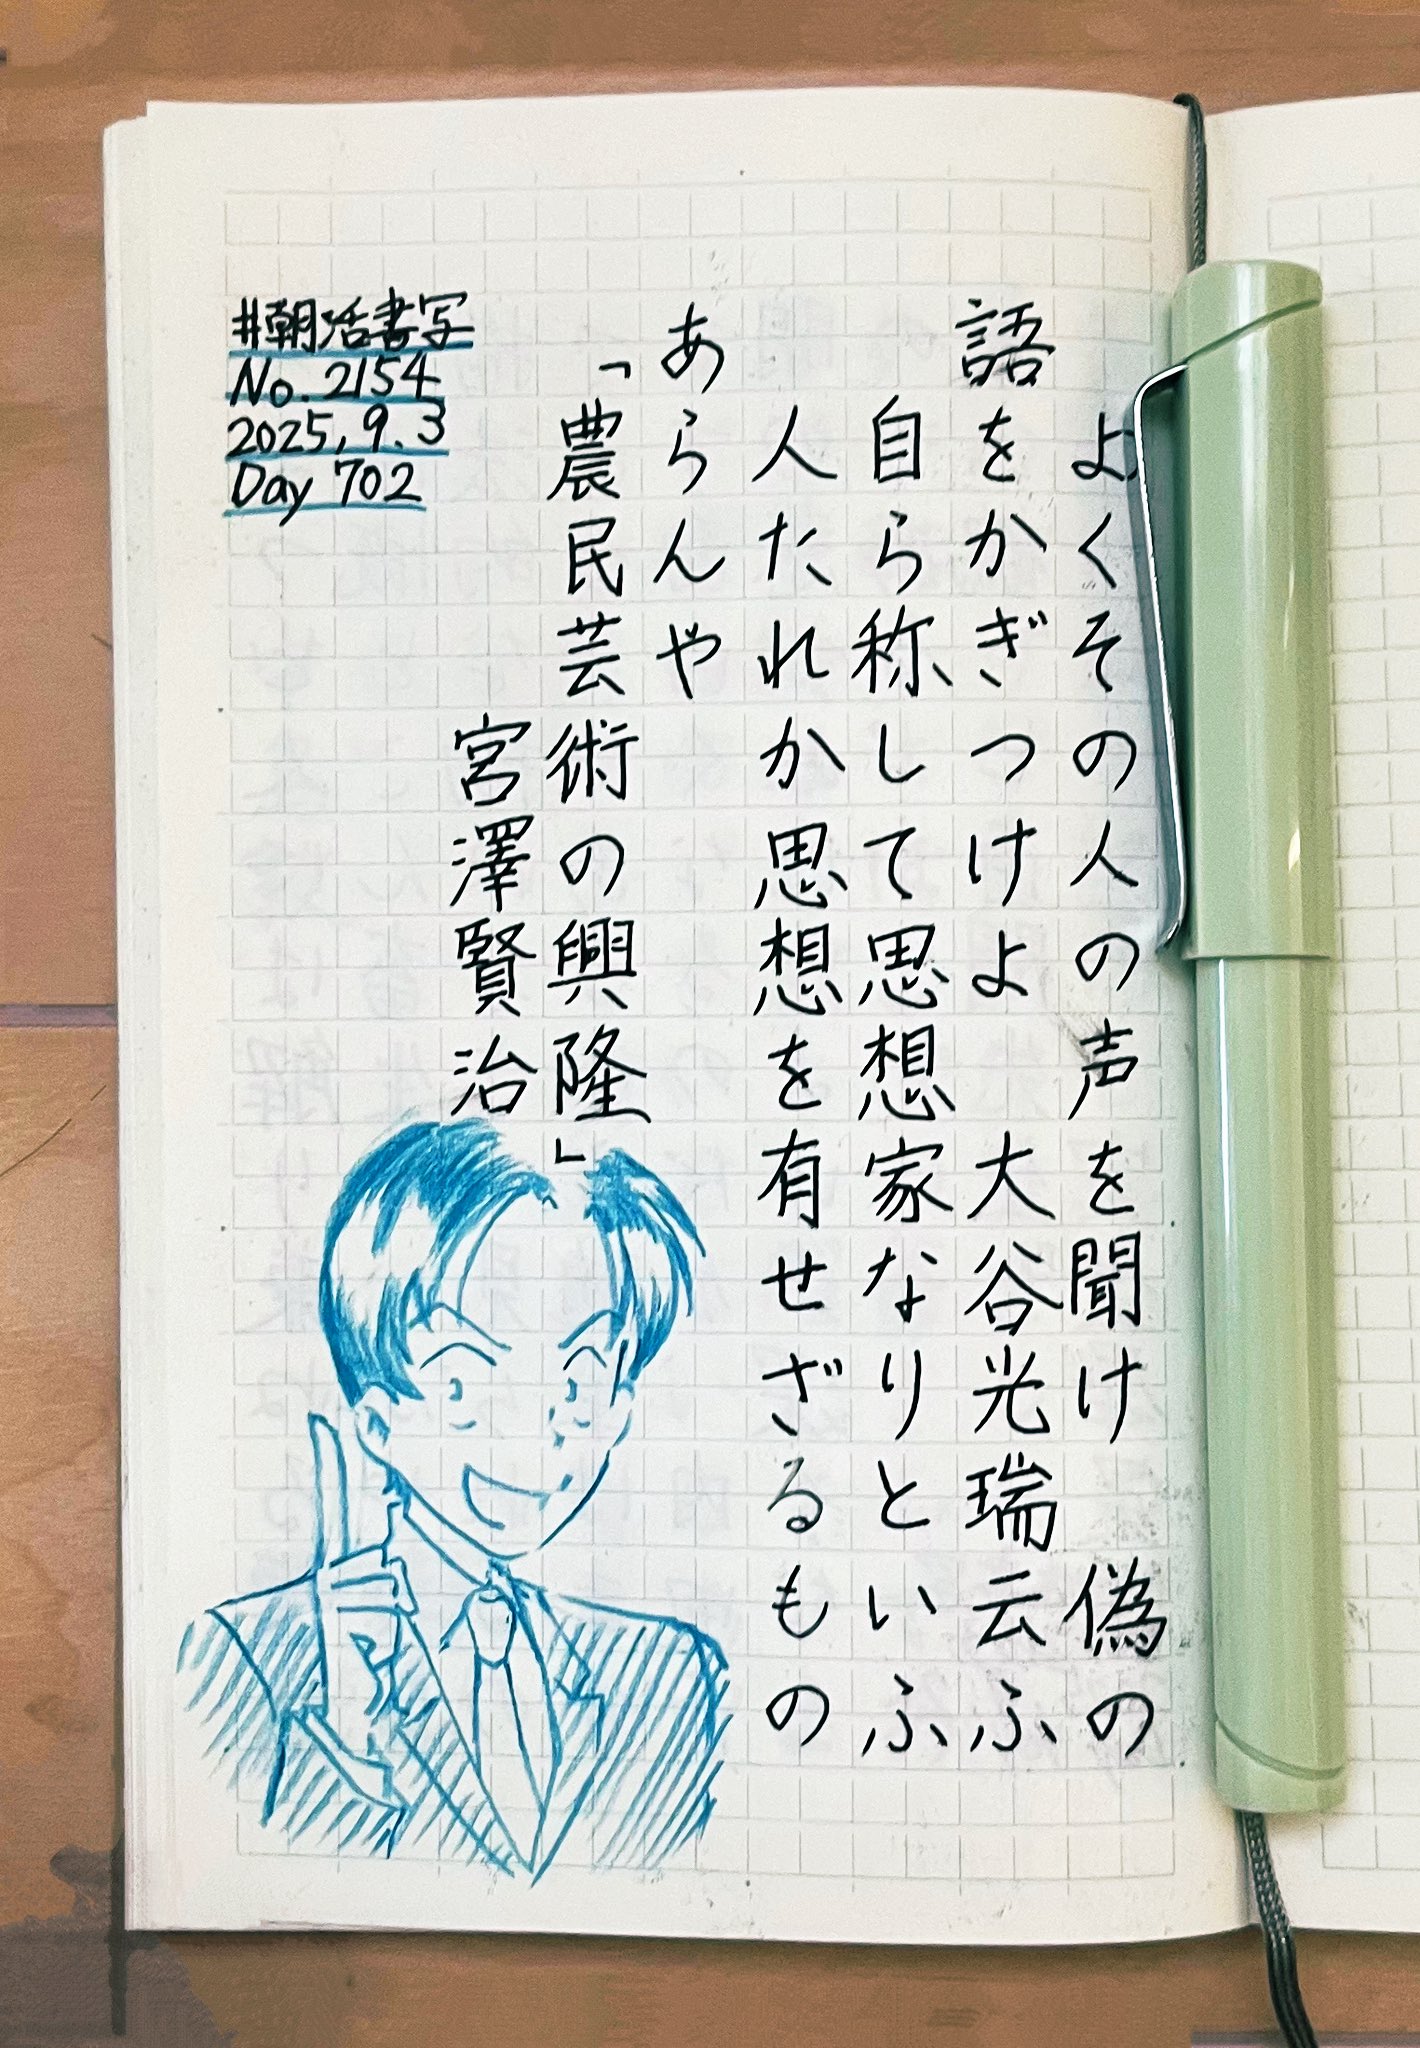 よくその人の声を聞け　偽の
語をかぎつけよ　大谷光瑞云ふ
自ら称して思想家なりといふ
人たれか思想を有せざるもの
あらんや
「農民芸術の興隆」
宮澤賢治
#朝活書写
No. 2154
2025. 9. 3
Day 702